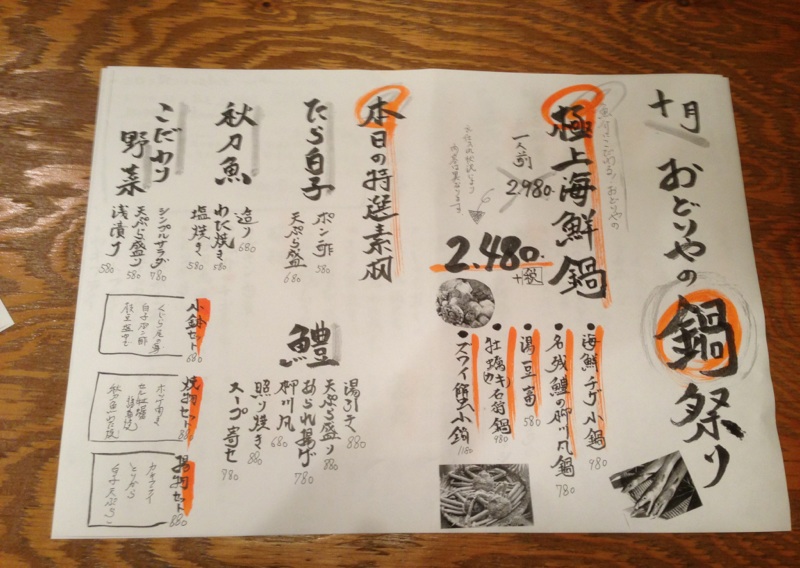 十月
おどりやの
鍋祭り
極上海鮮鍋
一人前
2.980.
2.480.
+税
・海鮮チリ小鍋
980
・名残鱧の柳川風鍋
780
・湯豆腐
580
・牡蠣(カキ)石狩鍋
980
・ズワイ蟹小鍋
1180
本日の特選素材
たら白子
ポン酢
580
天ぷら盛り
680
秋刀魚
造り
680
わた焼き
580
塩焼き
580
こだわり
野菜
シンプルサラダ
780
天ぷら盛り
580
浅漬け
580
鱧
湯引き
880
天ぷら盛り
880
あられ揚げ
780
柳川風
680
照り焼き
880
スープ寄せ
780
小鉢セット
680
白子ポン酢
焼物セット
880
揚物セット
880
白子天ぷら